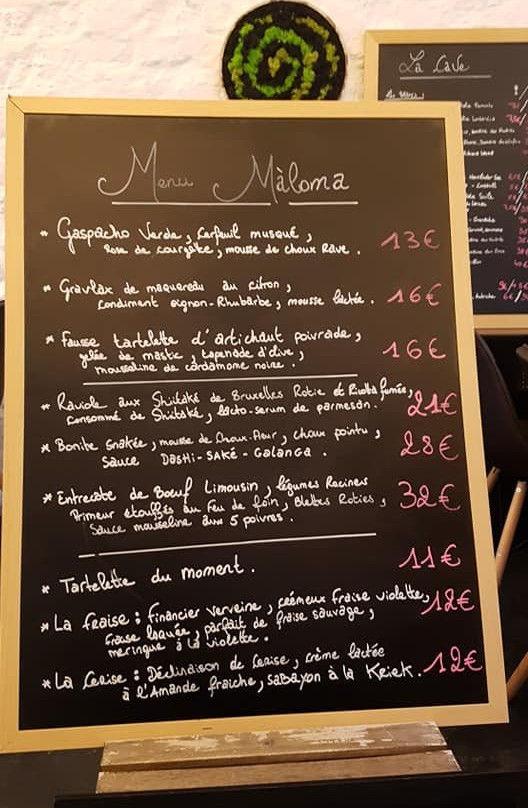 Menu Màloma
* Gaspacho Verde, Cerfeuil musqué,
Rose de courgette, mousse de choux Rave. 13€
* Gravlax de maquereau au citron,
condiment oignon-Rhubarbe, mousse lactée. 16€
* Fausse tartelette d'artichaut poivrade,
gelée de mastic, tapenade d'olive,
mousseline de cardamome noire. 16€
* Raviole aux Shiitaké de Bruxelles Rotie et Ricotta fumée,
consommé de Shiitaké, lacto-serum de parmesan. 21€
* Bonite Snakée, mousse de Choux-Fleur, choux pointu,
Sauce DASHI-SAKÉ-Galanga. 28€
* Entrecote de Bœuf Limousin, légumes Racines
Primeur étouffés au Feu de foin, Blettes Roties,
Sauce mousseline aux 5 poivres. 32€
* Tartelette du moment. 11€
* La fraise : financier Verveine, crémeux fraise violette,
fraise laquée, parfait de fraise sauvage,
meringue à la violette. 12€
* La Cerise : Déclinaison de Cerise, crème lactée
à l'Amande fraiche, Sabayon à la Kriek. 12€
La Cave